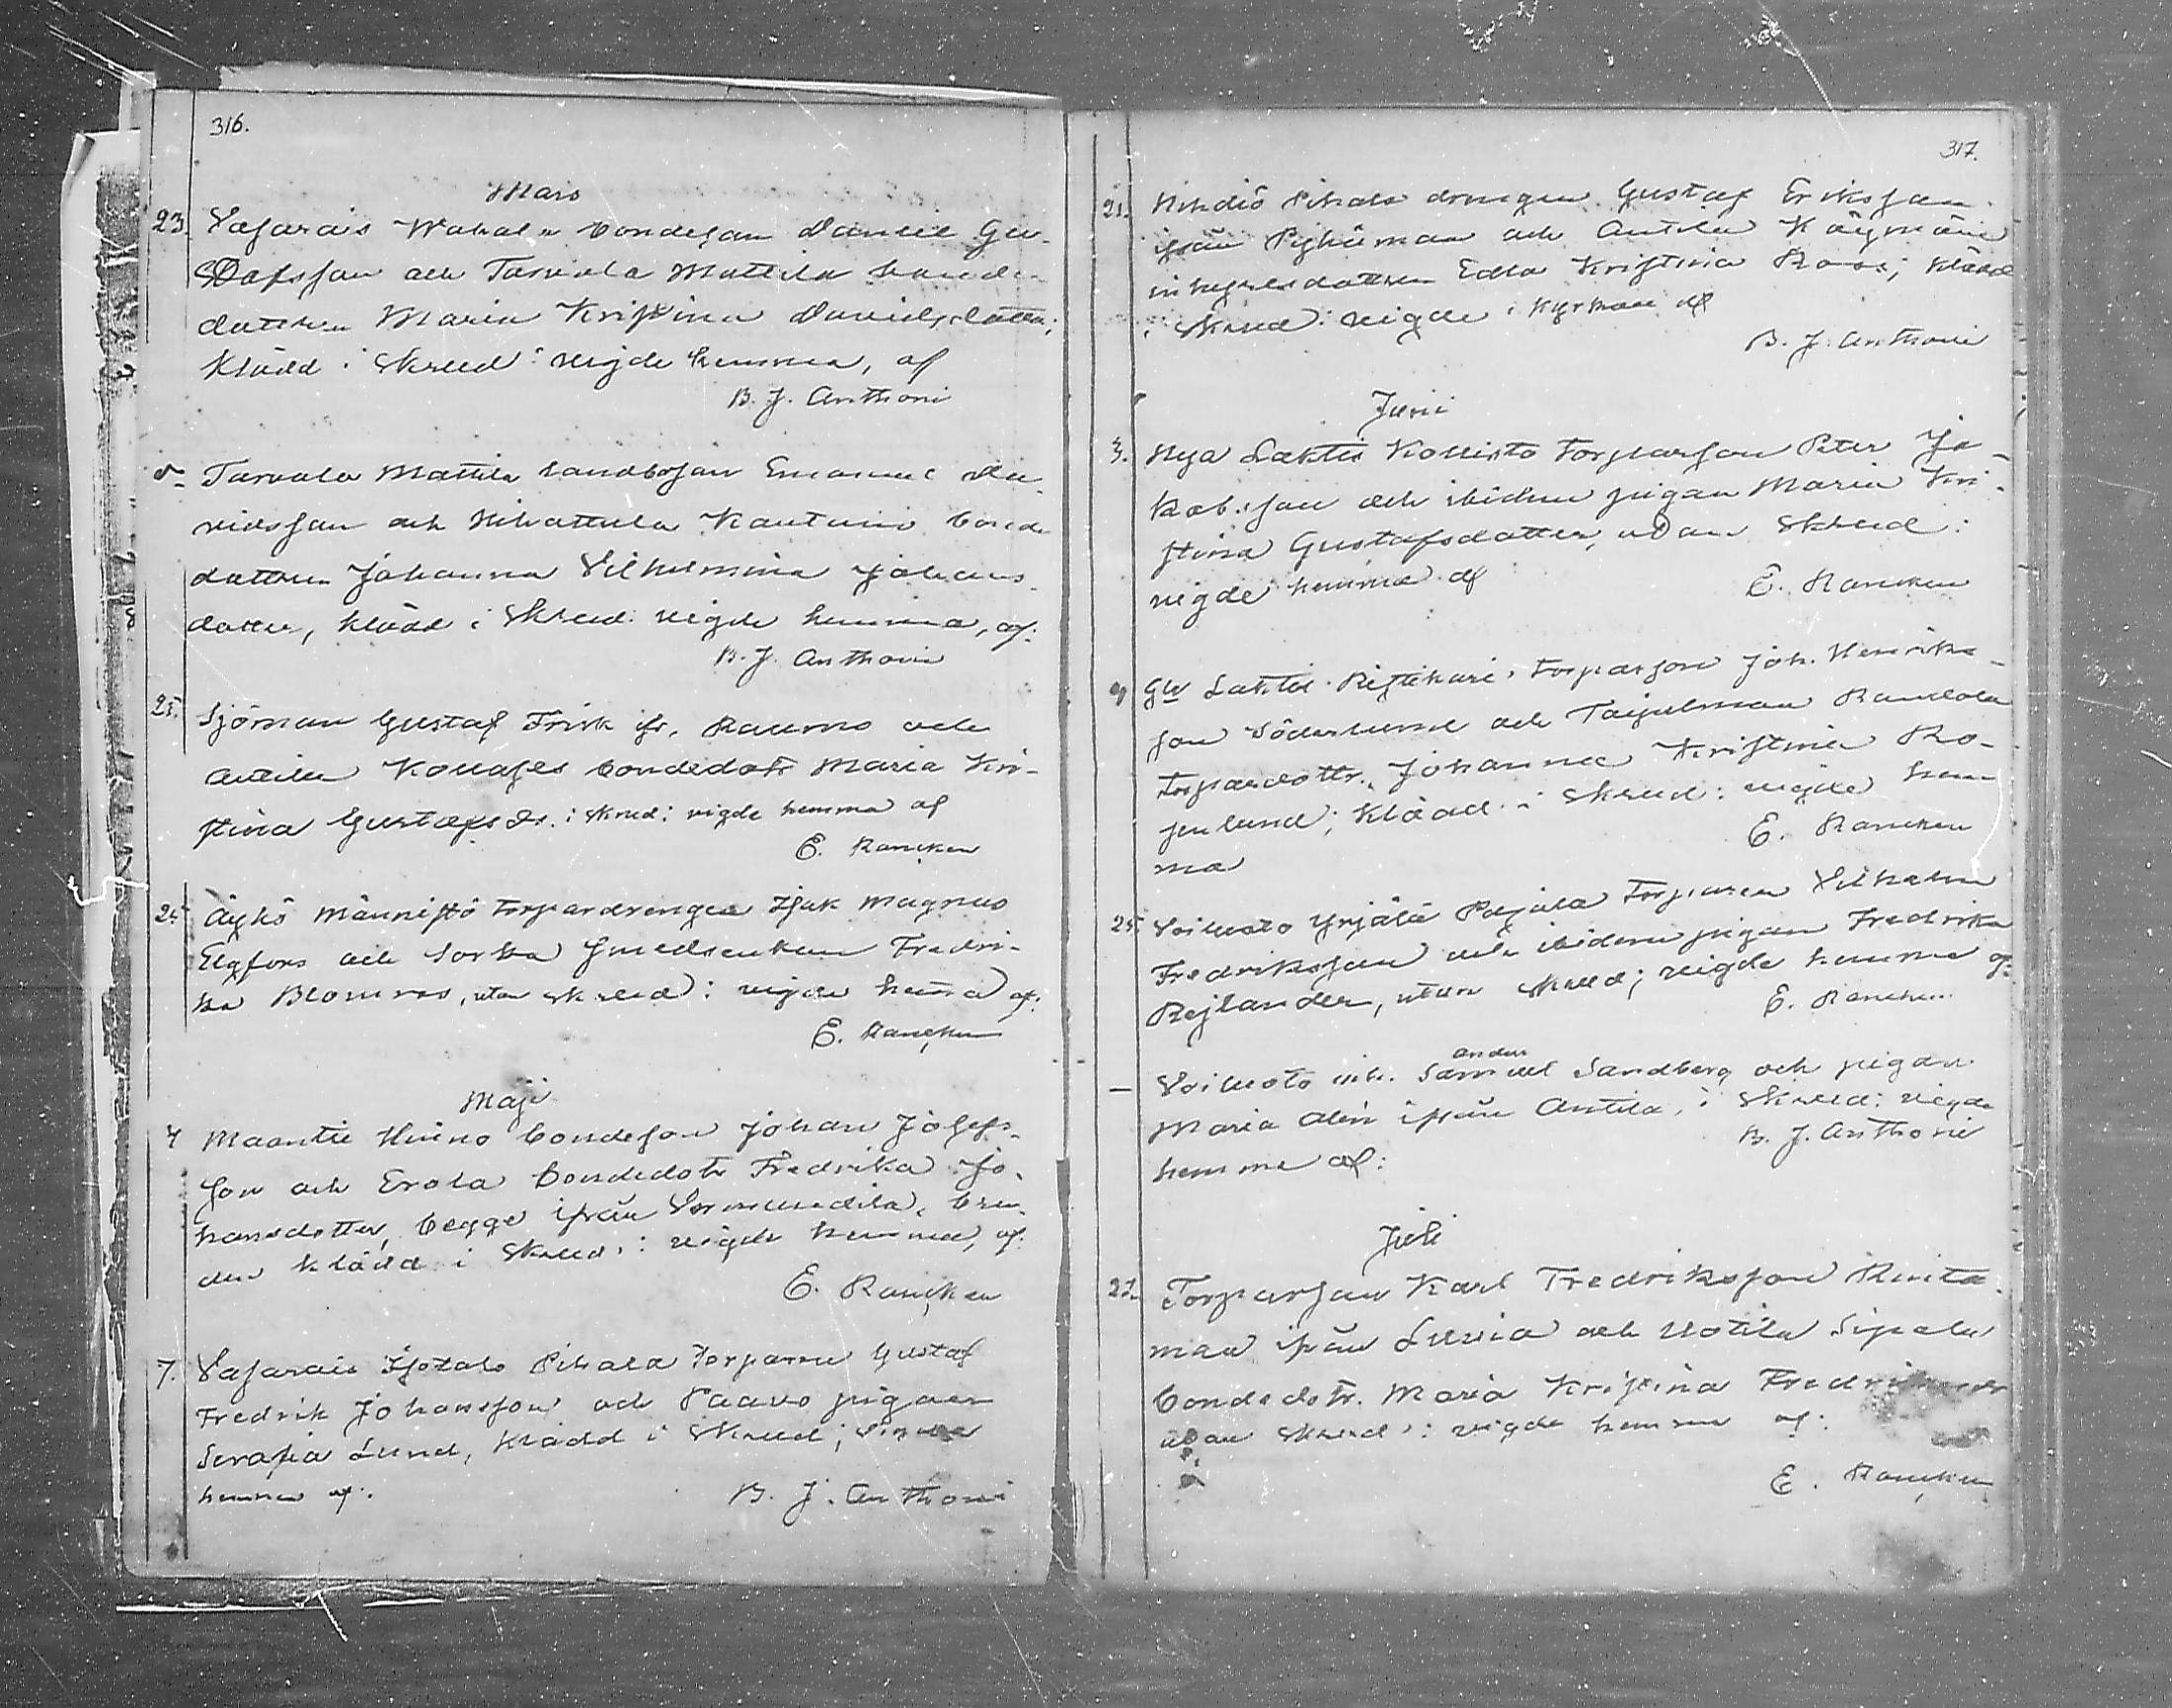 316.
Mars
23. Vafarais Wahala bondeson Daniel Gu-
stafsson och Tarvola Mattila bonde
dottren Maria Kristina Davidsdotter;
klädd i skrud: vigde hemma, af
B. J. Anthoni
Tarvola Mattila landbosson Emanuel Da-
vidsson och Kautuni bonde
dottren Johanna Vilhelmina Johans
dotter, klädd i skrud: vigde hemma, af:
B. J. Anthoni
25. Sjöman Gustaf Frisk fr. Raumo och
Antila bondedotr Maria Kri-
stina Gustafsdr. i skrud: vigde hemma af
E. Rancken
25. Äykö Männistö torpardrengen Isak Magnus
Elgfors och Sorkka smedsenkan Fredri-
ka Blomroos, utan skrud: vigde hema af:
E. Rancken
Maji
4 Maantie Heino bondeson Johan Josefs-
son och Erola bondedotr Fredrika Jo-
hansdotter, begge ifrån Vermundila, bru-
den klädd i skrud: vigde hemma, af:
E. Rancken
7. Vafarais Isotalo Pihala torparen Gustaf
Fredrik Johansson och Paavo pigan
Serafia Lund, klädd i skrud;
hemma af:
B. J. Anthoni
317.
21. Pihala drengen Gustaf Eriksson
ifrån och Antila
inhysesdottren Edla Kristina Roos; klädd
i skrud: vigde i kyrkan af
B. J. Anthoni
Juni
3. Nya Laktis Kollisto torparson Peter Ja-
kobsson och ibidem pigan Maria Kri-
stina Gustafsdotter, utan skrud:
vigde hemma af
E. Rancken
9 Gl. Laktis Ristikari torparson Joh. Henriks-
son Söderlund och Taipelman Randola
torparedottr. Johanna Kristina Ro-
senlund; klädd i skrud: vigde hem
ma
E. Rancken
25. Voiluoto Yrjälä Pajula torparen Vilhelm
Fredriksson och ibidem pigan Fredrika
Rejlander, utan skrud; vigde hemma af:
E. Rancken
anders
— Voiluoto inh. Samuel Sandberg och pigan
Maria Alén ifrån Antila, i skrud: vigde
hemma af:
B. J. Anthoni
Juli
Torparson Karl Fredriksson Rinta
man ifrån Luvia och Uotila Sipola
bondedotr. Maria Kristina
utan skrud: vigde hemma af:
E. Rancken